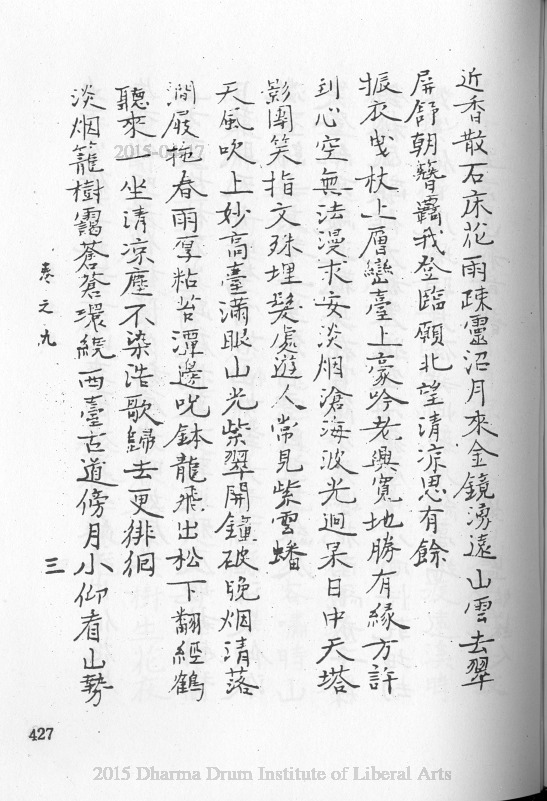 近香散石床花雨疎靈沼月來金鏡湧遠山雲去翠
屏舒朝簪羈我登臨願北望清凉思有餘
振衣曳杖上層巒臺上豪吟老興寬地勝有緣方許
到心空無法漫求安淡烟滄海波光迥杲日中天塔
影團笑指文殊埋髮處遊人常見紫雲蟠
天風吹上妙高臺滿眼山光紫翠開鐘破晚烟清落
澗屐拖春雨厚粘苔潭邊咒鉢龍飛出松下翻經鶴
聽來一坐清凉塵不染浩歌歸去更徘徊
淡烟籠樹靄蒼蒼環繞西臺古道傍月小仰看山勢
卷之九
三
427
2015 Dharma Drum Institute of Liberal Arts